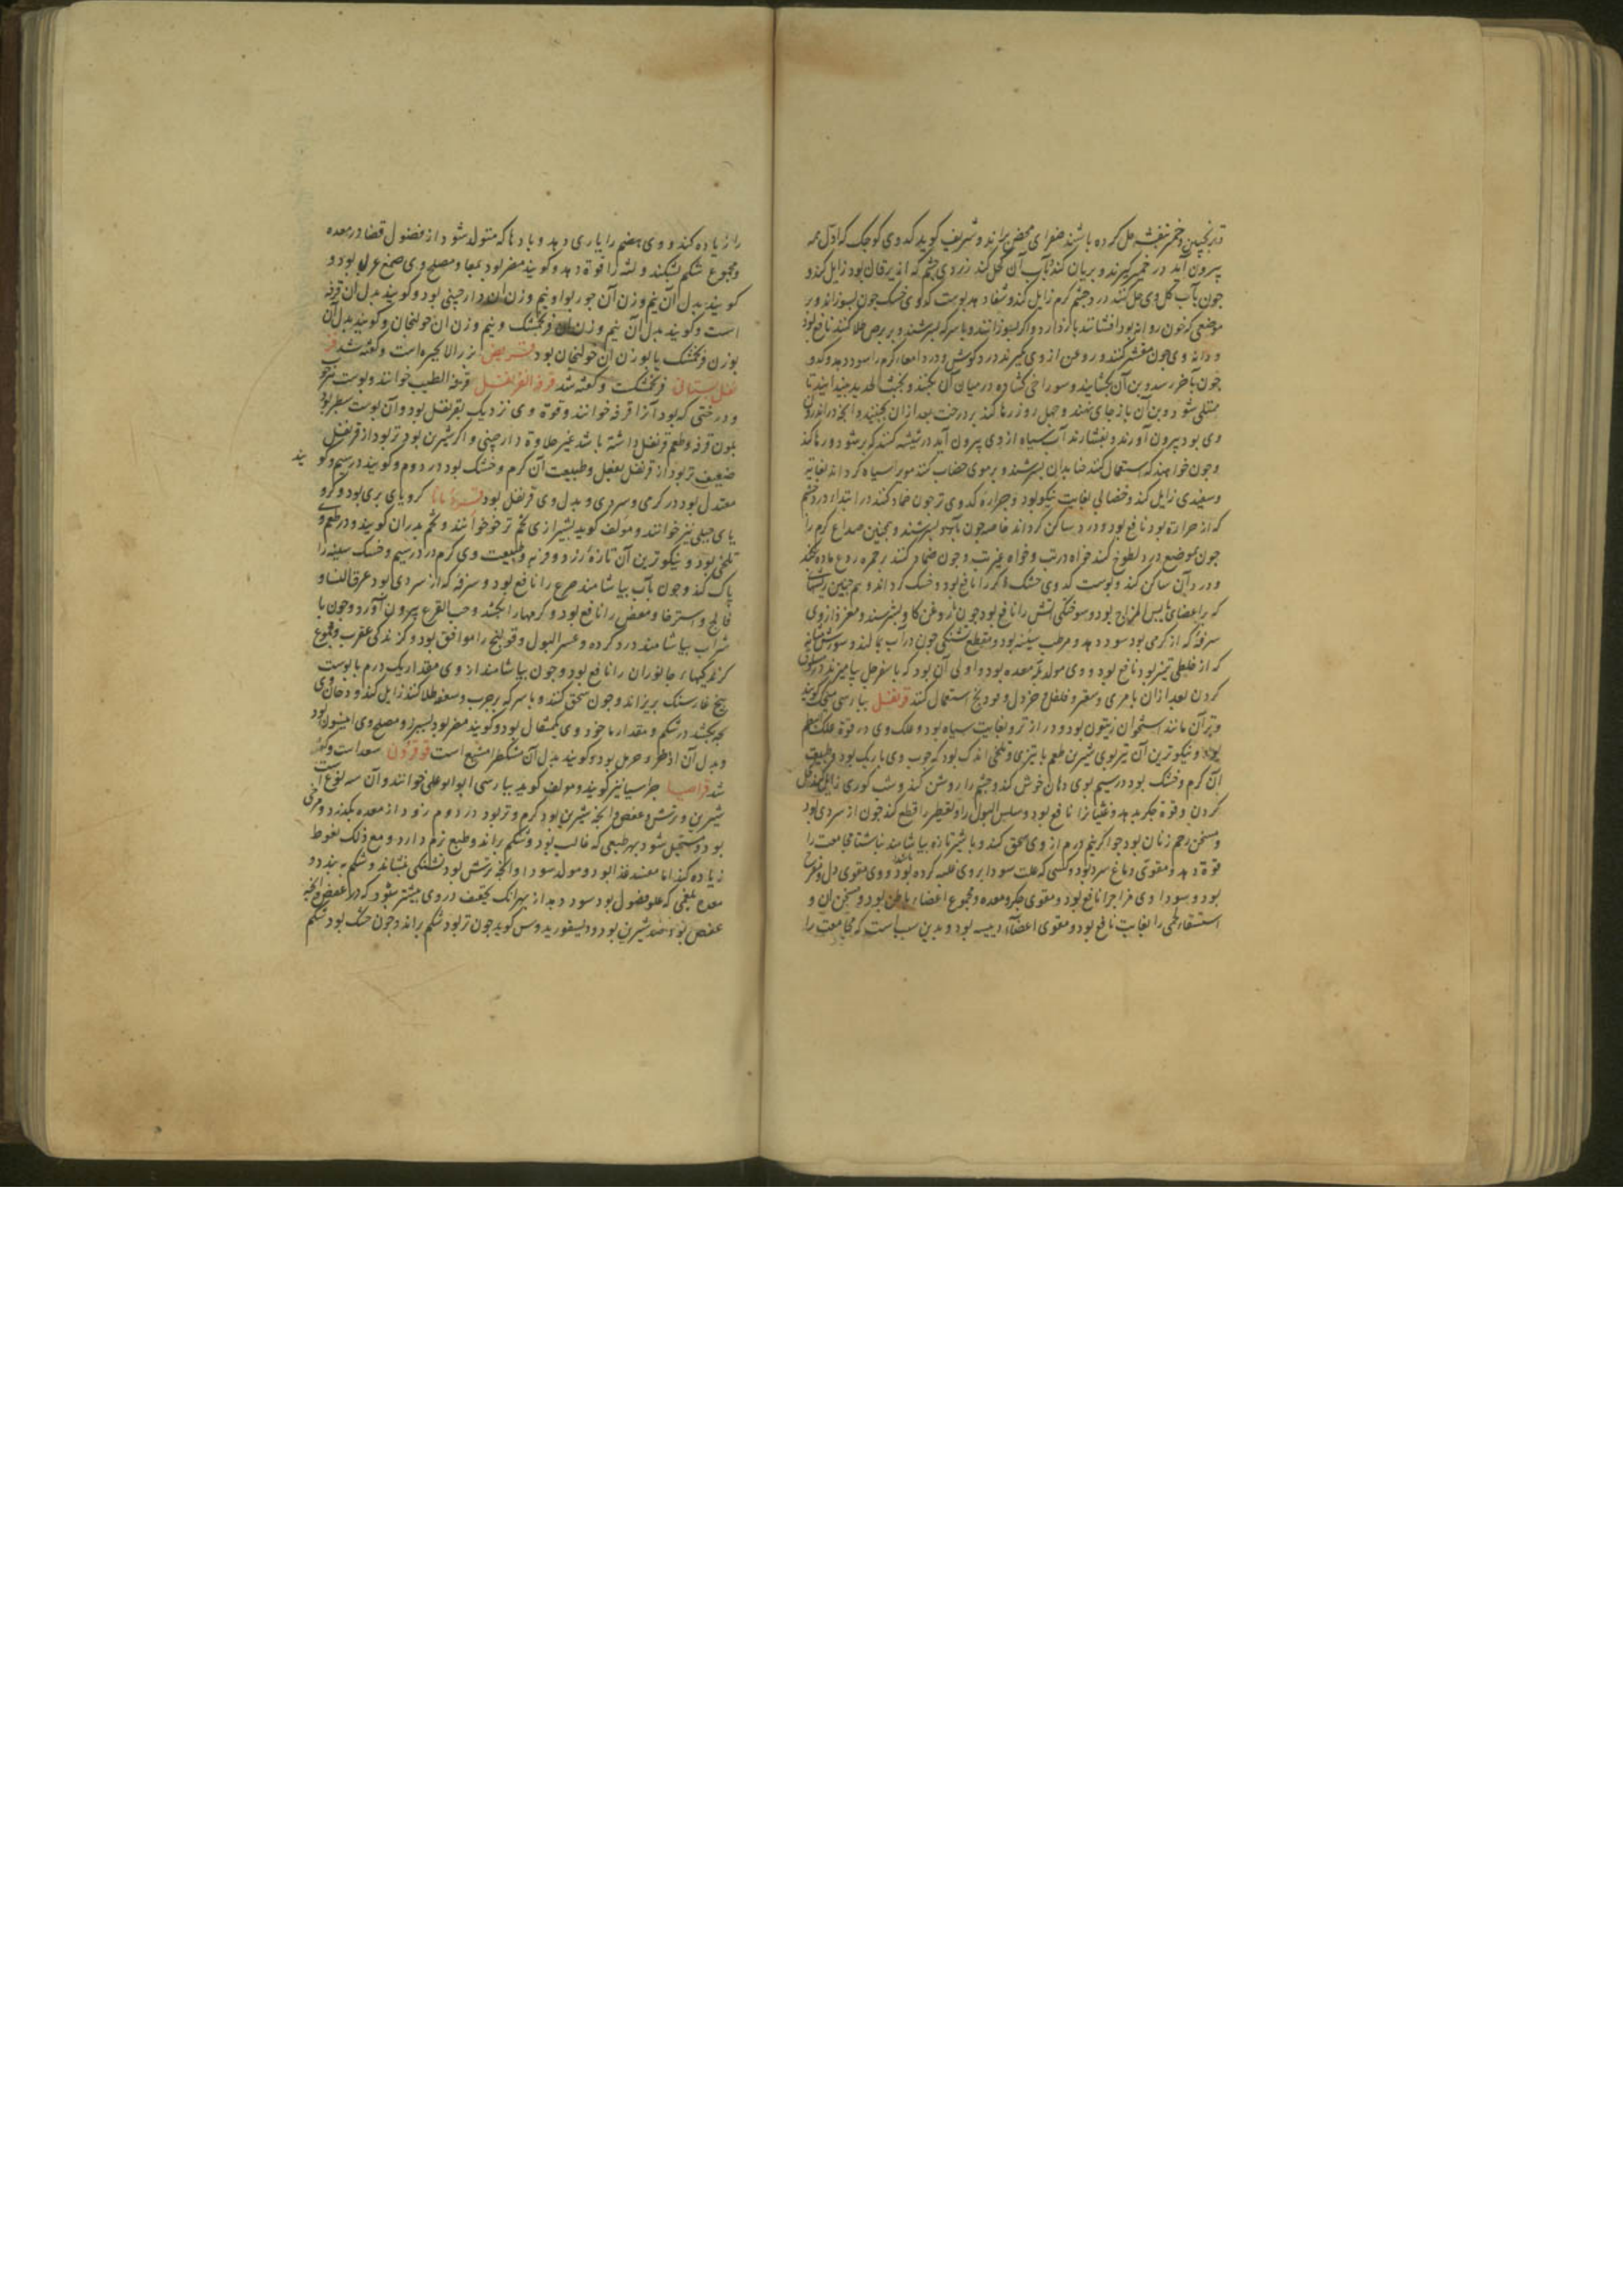 ترنجبین و خمر بنفشه حل کرده باشند صفرای محض براند و شریف کوید کدوی کوچک که اول همه
بیرون آید در خمیر کیرند و بریان کنند بآب آن کحل کنند زردی چشم که از یرقان بود زایل کند و
چون بآب کل وی حل کنند درد چشم کرم زایل کند و شفا دهد پوست کدوی خشک چون بسوزانند و بر
موضعی که خون روانه بود افشانند باز دارد و اگر بسوزانند و با سرکه بسرشند و بر برص طلا کنند نافع بود
و دانه وی چون مقشر کنند و روغن از وی کیرند درد کوش و درد امعاء کرم را سود دهد و کدو
چون بآخر رسد و بن آن بکشایند و سوراخی کشاده در میان آن بکنند و بخبث الحدید بیندایند تا
ممتلی شود و بن آن باز جای نهند و چهل روز رها کنند بر درخت بعد از ان بچینند و آنچه در اندرون
وی بود بیرون آورند و بفشارند آب سیاه از وی بیرون آید در شیشه کنند که بر شود و رها کنند
و چون خواهند که استعمال کنند حنا بدان بسرشند و بر موی خضاب کنند مو را سیاه کرداند بغایة
و سفیدی زایل کند و خضابی بغایت نیکو بود و جراده کدوی تر چون ضماد کنند در ابتداء درد چشم
که از حرارة بود نافع بود و درد ساکن کرداند خاصه چون بآب بسرشند و همچنین صداع کرم را
چون بموضع درد لطوخ کنند خواه در تب و خواه غیر تب و چون ضماد کنند بر حمره ردع ماده بکند
و درد آن ساکن کند و پوست کدوی خشک ذکر را نافع بود و خشک کرداند و هم چنین ریشها
که بر اعضای یابس المزاج بود و سوختکی آتش را نافع بود چون با روغن کاو بسرشند و مغز دار وی
سرفه که از کرمی بود سود دهد و مرطب سینه بود و مقطع تشنکی چون در آب بمالند و سوزش مثانه
که از خلطی تیز بود نافع بود و وی مولد بله معده بود و اولی آن بود که با سفرجل بیامیزند در سلوق
کردن بعد از ان با مری و سعتر و فلفل و خردل و بودنج استعمال کنند قرنفل بپارسی میخک کویند
و ثمر آن مانند استخوان زیتون بود و دراز تر و بغایت سیاه بود و علک وی در قوة علک البطم
بود و نیکو ترین آن تیز بوی شیرین طعم با تیزی و تلخی اندک بود که چوب وی باریک بود و طبیعت
آن کرم و خشک بود در سیم بوی دهان خوش کند و چشم را روشن کند و شب کوری زایل کند کحل
کردن و قوة جکر بدهد و غثیان را نافع بود و سلس البول را و تقطیر را قطع کند چون از سردی بود
و مسخن رحم زنان بود چو اکر نیم درم از وی سحق کنند و با شیر تازه بیاشامند ناشتا مجامعت را
قوة دهد و مقوی دماغ سرد بود و کسی که علت سودا بر وی غلبه کرده باشد بود و وی مقوی دل و مفرح
بود و سوداوی مزاج را نافع بود و مقوی جکر و معده و مجموع اعضاء باطن بود و مسخن آن و
استسقاء لحمی را بغایت نافع بود و مقوی اعضاء رییسه بود و بدین سبب است که مجامعت را
را زیاده کند و وی هضم را یاری دهد و بادها که متولد شود از فضول فضا در معده
و مجموع شکم بشکند و لثه را قوة دهد و کویند مضر بود بمعا و مصلح وی صمغ عربی بود و
کویند بدل آن نیم وزن آن جوز بوا و نیم وزن آن دارچینی بود و کویند بدل آن قرفه
است و کویند بدل آن نیم وزن آن فرنجمشک و نیم وزن آن خولنجان و کویند بدل آن
بوزن فرنجمشک یا بوزن آن خولنجان بود قریص بزر الانجره است و کفته شد قر
نفل بستانی فرنجمشکت و کفته شد قرفة القرنفل قرفة الطیب خوانند و پوست تنه
و درختی که بود آنرا قرفه خوانند و قوة وی نزدیک بقرنفل بود و آن پوست سطبر بود
بلون قرفه و طعم قرنفل داشته باشد غیر حلاوة دارچینی و اکر شیرین بود تر بود از قرنفل
ضعیف تر بود از قرنفل بفعل و طبیعت آن کرم و خشک بود در دوم و کویند در سیم و کو یند
معتدل بود در کرمی و سردی و بدل وی قرنفل بود قردمانا کرویای بری بود و کرو
یای جبلی نیز خوانند و مولف کوید بشیرازی تخم ترخو خوانند و تخم بدران کویند و در طعم وی
تلخی بود و نیکو ترین آن تازه زرد و فربه و طبیعت وی کرم در سیم و خشک سینه را
پاک کند و چون بآب بیاشامند صرع را نافع بود و سرفه که از سردی بود عرق النسا و
فالج و استرخا و مغص را نافع بود و کرمها را بکشد و حب القرع بیرون آورد و چون با
شراب بیاشامند درد کرده و عسر البول و قولنج را موافق بود و کزندکی عقرب و مجموع
کزندکیهاء جانوران را نافع بود و چون بیاشامند از وی مقدار یک درم با پوست
بیخ غار سنک بریزاند و چون سحق کنند و با سرکه بر جرب و سعفه طلا کنند زایل کند و دخان وی
بچه بکشد در شکم و مقدار ماخوذ وی یکمثقال بود و کویند مضر بود بسپرز و مصلح وی انیسون بود
و بدل آن اذخر و حرمل بود و کویند بدل آن مشکطرامشیع است قوقرون سعد است و کفته
شد قراصیا جراسیا نیز کویند و مولف کوید بپارسی ابوابوعلی خوانند و آن سه نوع است
شیرین و ترش و عفص و آنچه شیرین بود کرم و تر بود در دوم زود از معده بکذرد و مرخی
بود و مستحیل شود بهر طبیعی که غالب بود و شکم براند و طبع نرم دارد و مع ذلک نعوظ
زیاده کند اما مفسد غذا بود و مولد سودا و آنچه ترش بود تشنکی بنشاند و شکم ببندد و
معده بلغمی که مملو فضول بود سود دهد از بهر آنک تجفیف در وی بیشتر بود که در عفص و آنچه
عفص بود ضد شیرین بود و دیسقوریدوس کوید چون تر بود شکم براند و چون خشک بود شکم